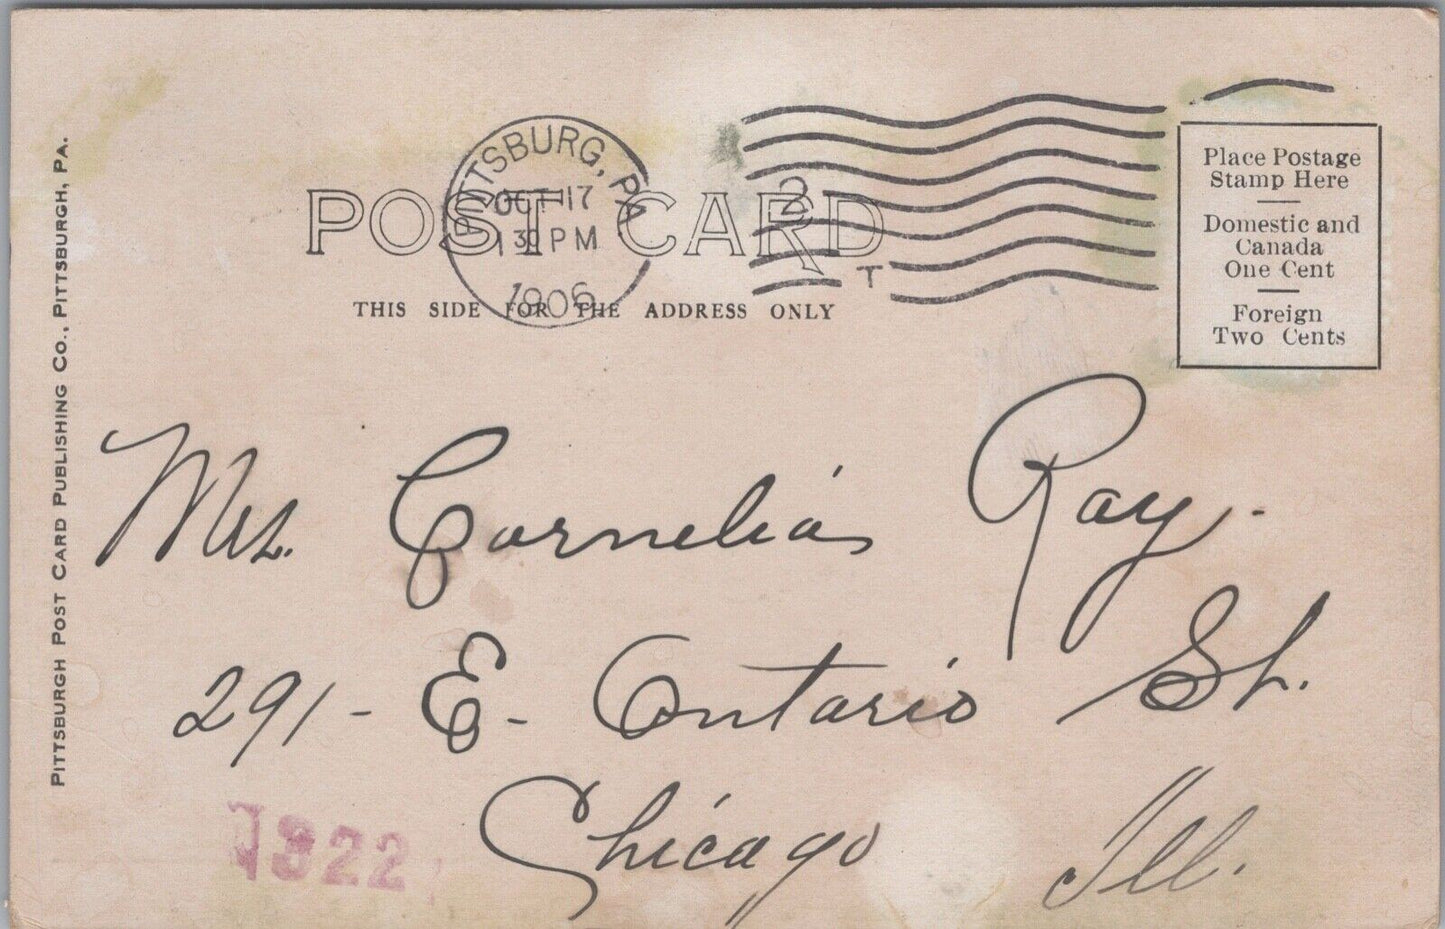 PITTSBURG, PA
OCT 17
1 30 PM
1906
2
T
POST CARD
THIS SIDE FOR THE ADDRESS ONLY
Place Postage
Stamp Here
Domestic and
Canada
One Cent
Foreign
Two Cents
PITTSBURGH POST CARD PUBLISHING CO., PITTSBURGH, PA.
Mrs. Cornelia Ray.
291 - E - Ontario St.
Chicago Ill.
1322